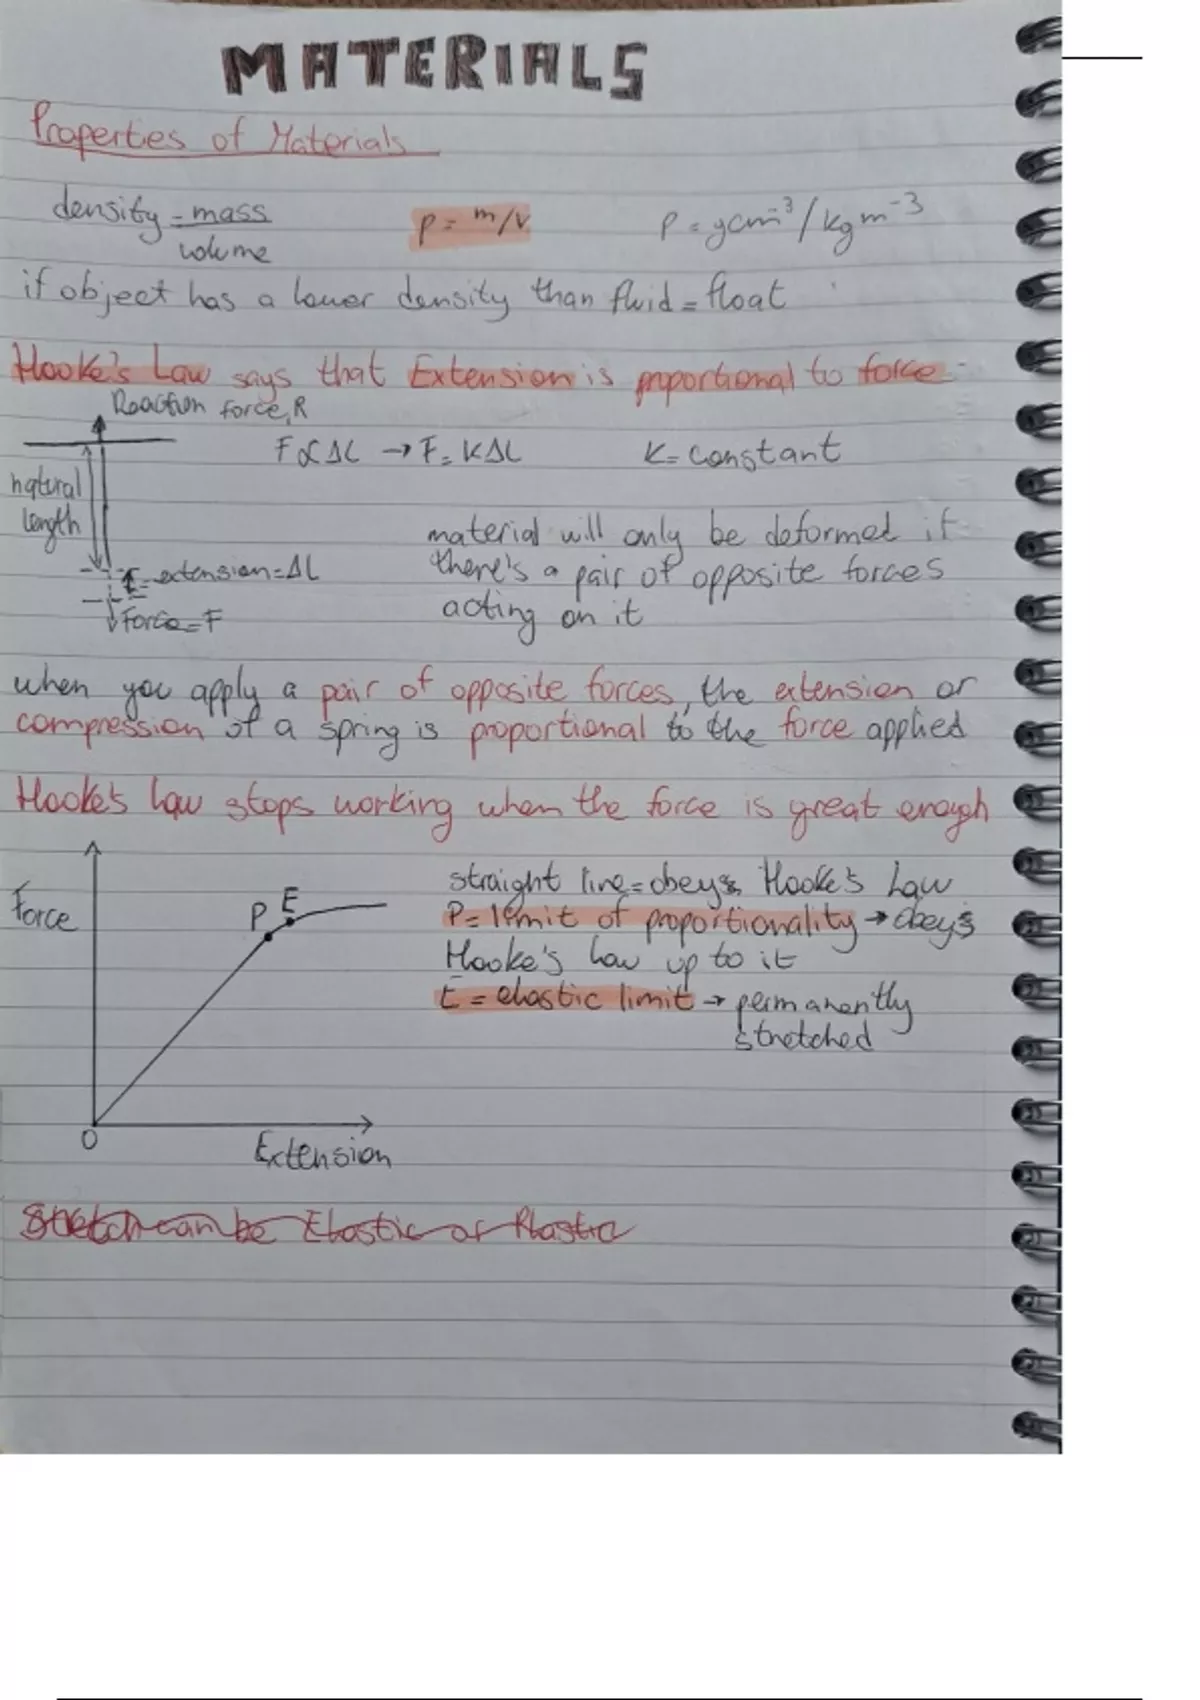 MATERIALS
Properties of Materials
density = mass
volume
ρ = m/v
ρ = gcm⁻³ / kgm⁻³
if object has a lower density than fluid = float
Hooke's Law says that Extension is proportional to force
Reaction force, R
F∝ΔL → F = KΔL
K = constant
natural
length
extension = ΔL
Force = F
material will only be deformed if
there's a pair of opposite forces
acting on it
when you apply a pair of opposite forces, the extension or
compression of a spring is proportional to the force applied
Hooke's law stops working when the force is great enough
Force
P E
O
Extension
straight line = obeys Hooke's Law
P = limit of proportionality → obeys
Hooke's law up to it
E = elastic limit → permanently
stretched
Stretch can be Elastic or Plastic